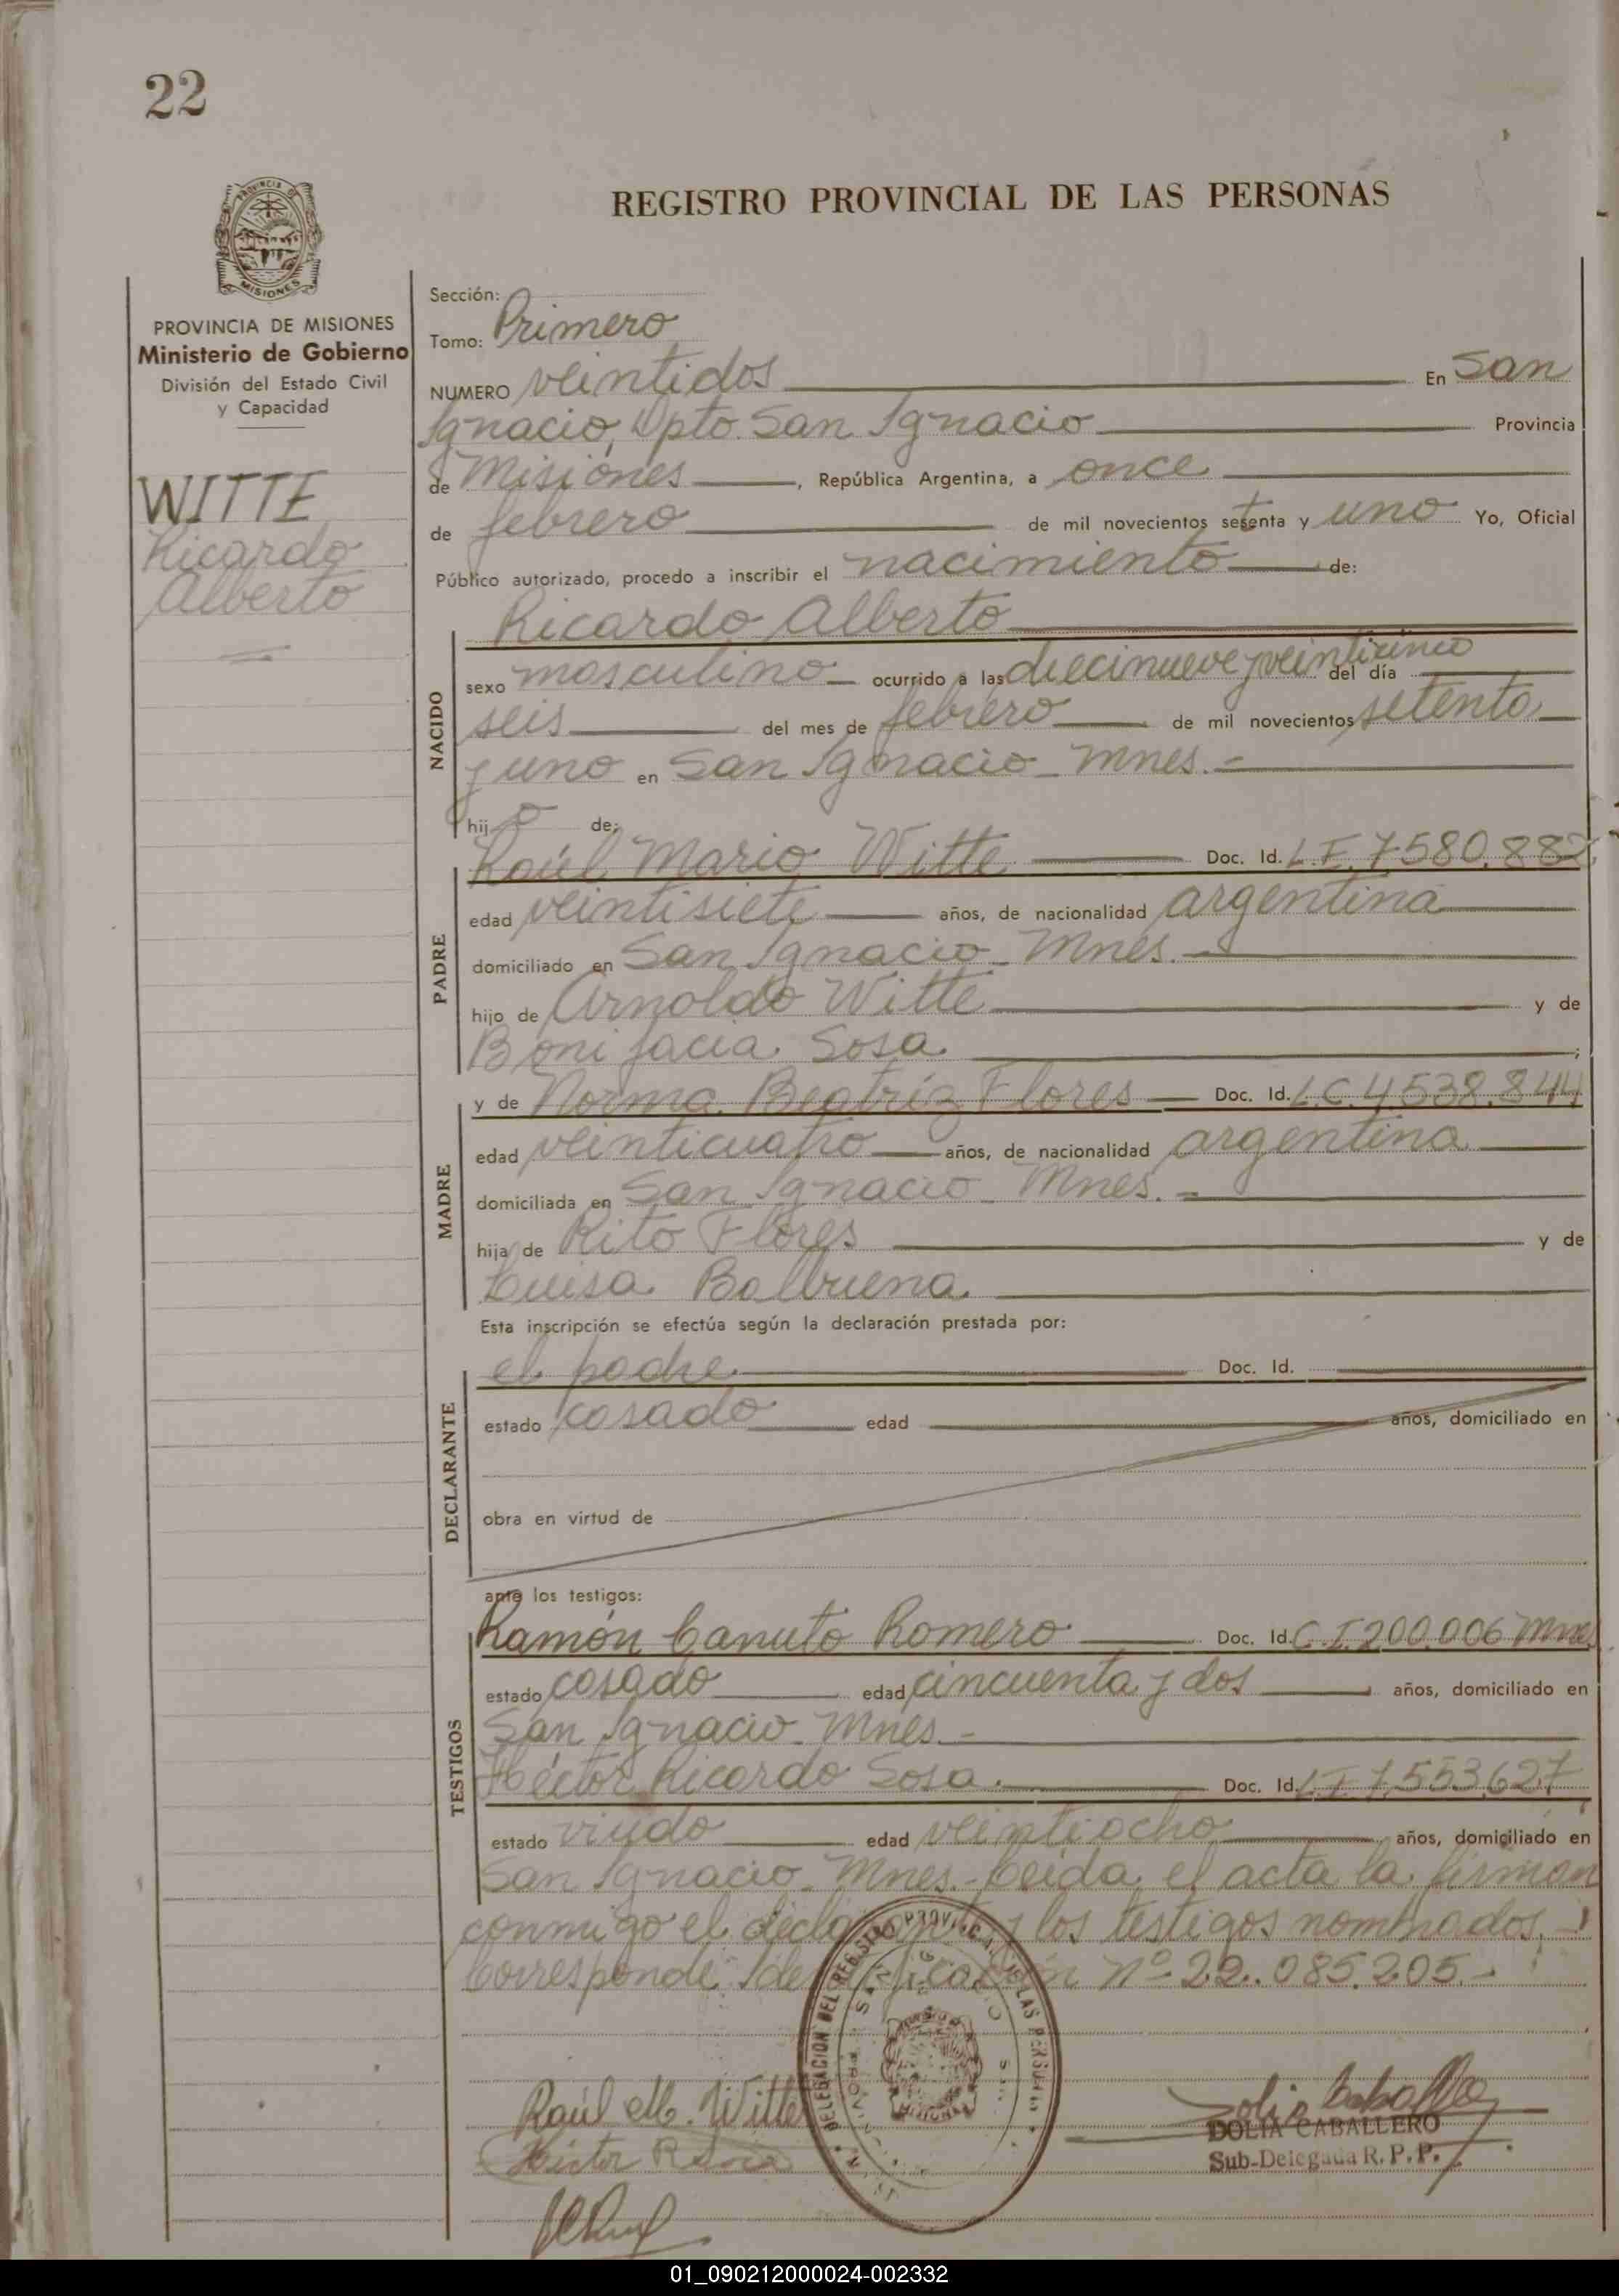 22
PROVINCIA DE
MISIONES
PROVINCIA DE MISIONES
Ministerio de Gobierno
División del Estado Civil
y Capacidad
WITTE
Ricardo
Alberto
REGISTRO PROVINCIAL DE LAS PERSONAS
Sección:
Tomo: Primero
NUMERO veintidos En San
Ignacio, Dpto. San Ignacio Provincia
de Misiones, República Argentina, a once
de febrero de mil novecientos setenta y uno Yo, Oficial
Público autorizado, procedo a inscribir el nacimiento de:
Ricardo Alberto
NACIDO
sexo masculino ocurrido a las diecinueve y veinticinco del día
seis del mes de febrero de mil novecientos setenta
y uno en San Ignacio - Mnes. -
hijo de:
PADRE
Raúl Mario Witte Doc. Id. L.E. 7580.882
edad veintisiete años, de nacionalidad argentina
domiciliado en San Ignacio - Mnes. -
hijo de Arnoldo Witte y de
Bonifacia Sosa ;
MADRE
y de Norma Beatríz Flores Doc. Id. L.C. 4.538.844
edad veinticuatro años, de nacionalidad argentina
domiciliada en San Ignacio - Mnes. -
hija de Rito Flores y de
Luisa Balbuena.
Esta inscripción se efectúa según la declaración prestada por:
DECLARANTE
el padre Doc. Id.
estado casado edad años, domiciliado en
obra en virtud de
ante los testigos:
TESTIGOS
Ramón Canuto Romero Doc. Id. C.I. 200.006 Mnes
estado casado edad cincuenta y dos años, domiciliado en
San Ignacio - Mnes. -
Héctor Ricardo Sosa. Doc. Id. L.E. 7.553.627
estado viudo edad veintiocho años, domiciliado en
San Ignacio - Mnes. - Leida el acta la firman
conmigo el declarante y los testigos nombrados. -
Corresponde Identificación Nº 22.085.205. -
DELEGACION DEL REGISTRO PROVINCIAL DE LAS PERSONAS
SAN IGNACIO
MISIONES
Raúl M. Witte
Héctor R Sosa
DOLIA CABALLERO
Sub-Delegada R. P. P.
01_090212000024-002332